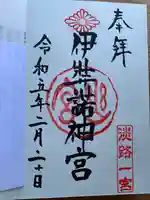 奉拝
伊弉諾神宮
令和五年二月二十日
淡路一宮